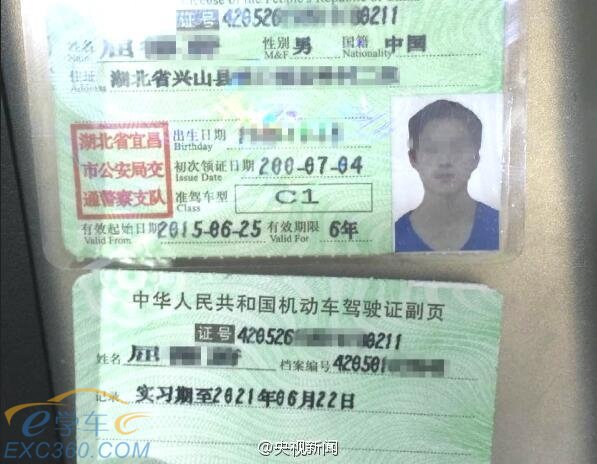 License of the People's Republic of China
证号 420526 0211
姓名 屈
Name
性别 男 国籍 中国
M&F Nationality
住址 湖北省兴山县
Address
湖北省宜昌
市公安局交
通警察支队
出生日期
Birthday
初次领证日期 200-07-04
Issue Date
准驾车型 C1
Class
有效起始日期 2015-06-25 有效期限 6年
Valid From Valid For
中华人民共和国机动车驾驶证副页
证号 420526 0211
姓名 屈 档案编号 420501
记录 实习期至2021年06月22日
e学车
EXC360.COM
@央视新闻